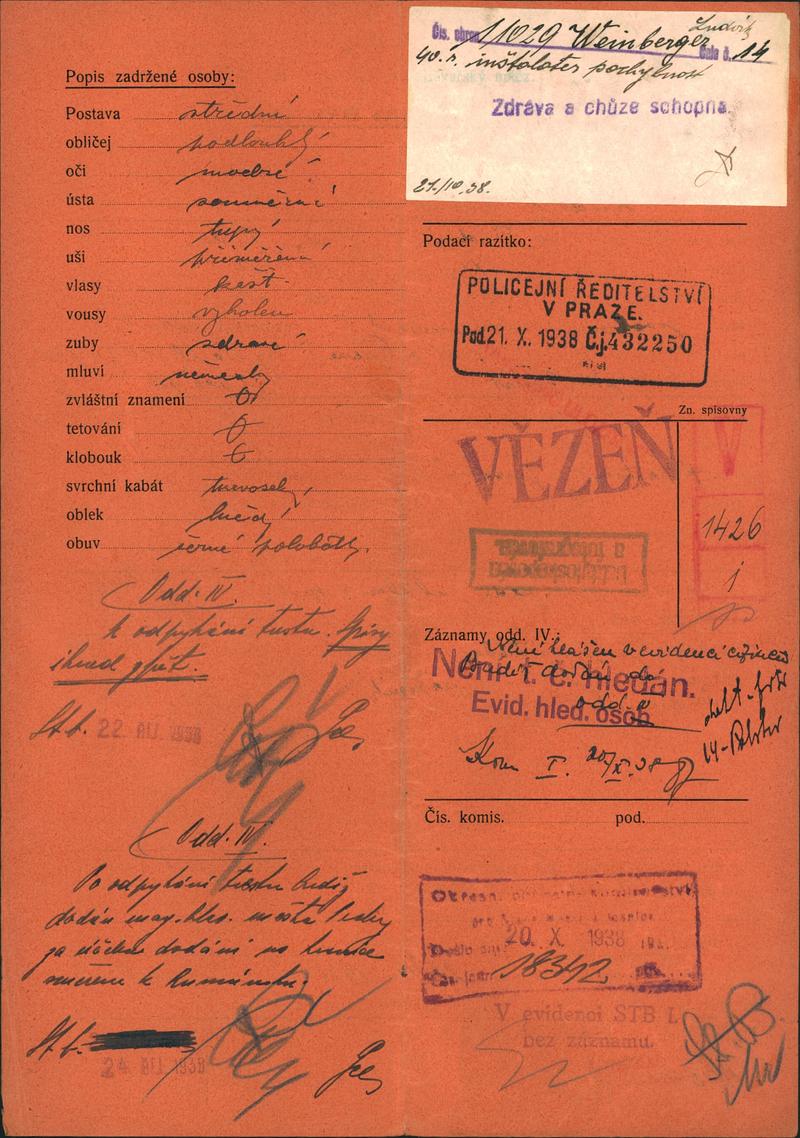 Popis zadržené osoby:
Postava střední
obličej podlouhlý
oči modré
ústa souměrná
nos tupý
uši přiměřené
vlasy kešt.
vousy vyholen
zuby zdravé
mluví německy
zvláštní znamení 0
tetování 0
klobouk 0
svrchní kabát
oblek šedý
obuv černé polobotky.
Odd. IV.
k odpykání trestu. Spisy
ihned zpět.
St. b. 22 ŘÍJ. 1938
Odd. IV.
Po odpykání trestu budiž
dodán mag. hlav. města Prahy
za účelem dodání na hranice
směrem k Rumunsku.
St. b.
24 ŘÍJ 1938
Čís. chov. 11029 Weinberger Ludvík
Cela č. 14
40. r. instalater pochylnost
Zdráva a chůze schopna.
21./10.38.
Podací razítko:
POLICEJNÍ ŘEDITELSTVÍ
V PRAZE.
Pod. 21. X. 1938 Č.j. 432250
Zn. spisovny
VĚZEŇ
V
1426
1
Daktyloskopován
a fotografován
Záznamy odd. IV.:
Není hlášen v evidenci cizinců
Budiž dodán do
odd. IV
Není t. č. hledán.
Evid. hled. osob
Kom I. 20/X. 38
Čís. komis. pod.
Okresn. policejní komisařství
Došlo dne: 20. X 1938
Čís. jedn. 18342
V evidenci STB I.
bez záznamu.
St. B.